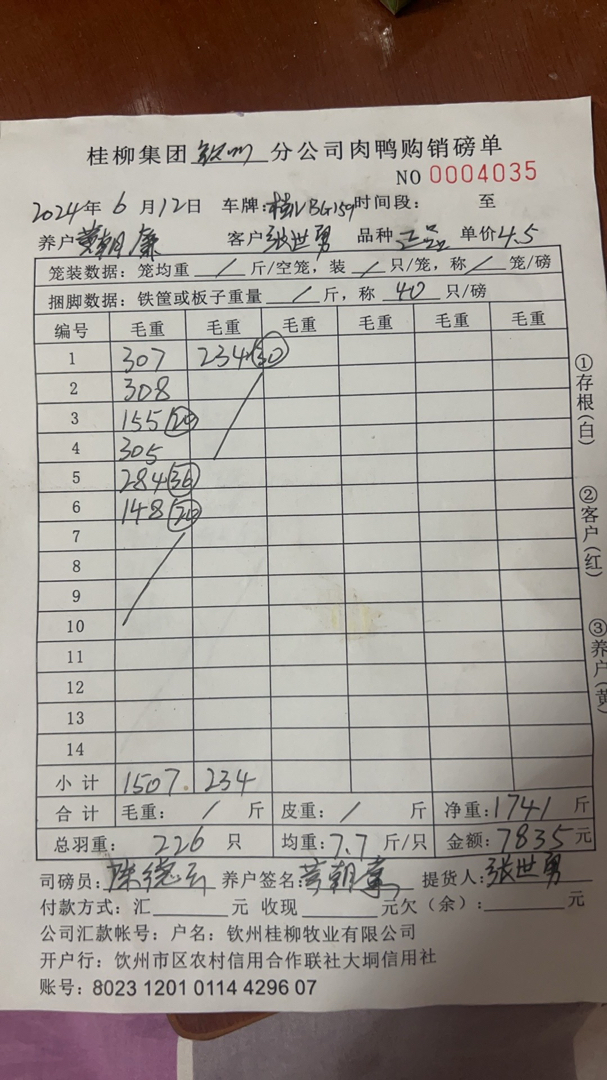 桂柳集团 钦州 分公司肉鸭购销磅单
NO 0004035
2024年 6 月 12 日 车牌: 时间段: 至
养户 黄朝廉 客户 张世勇 品种 正品 单价 4.5
笼装数据: 笼均重 / 斤/空笼, 装 / 只/笼, 称 / 笼/磅
捆脚数据: 铁筐或板子重量 / 斤, 称 40 只/磅
编号 毛重 毛重 毛重 毛重 毛重 毛重
1 307 234 (30)
2 308
3 155 (20)
4 305
5 284 (36)
6 148 (20)
7
8
9
10
11
12
13
14
小 计 1507 234
合 计 毛重: / 斤 皮重: / 斤 净重: 1741 斤
总羽重: 226 只 均重: 7.7 斤/只 金额: 7835 元
司磅员: 陈德云 养户签名: 黄朝廉 提货人: 张世勇
付款方式: 汇 元 收现 元欠(余): 元
公司汇款帐号: 户名: 钦州桂柳牧业有限公司
开户行: 钦州市区农村信用合作联社大垌信用社
账号: 8023 1201 0114 4296 07
①存根(白) ②客户(红) ③养户(黄)